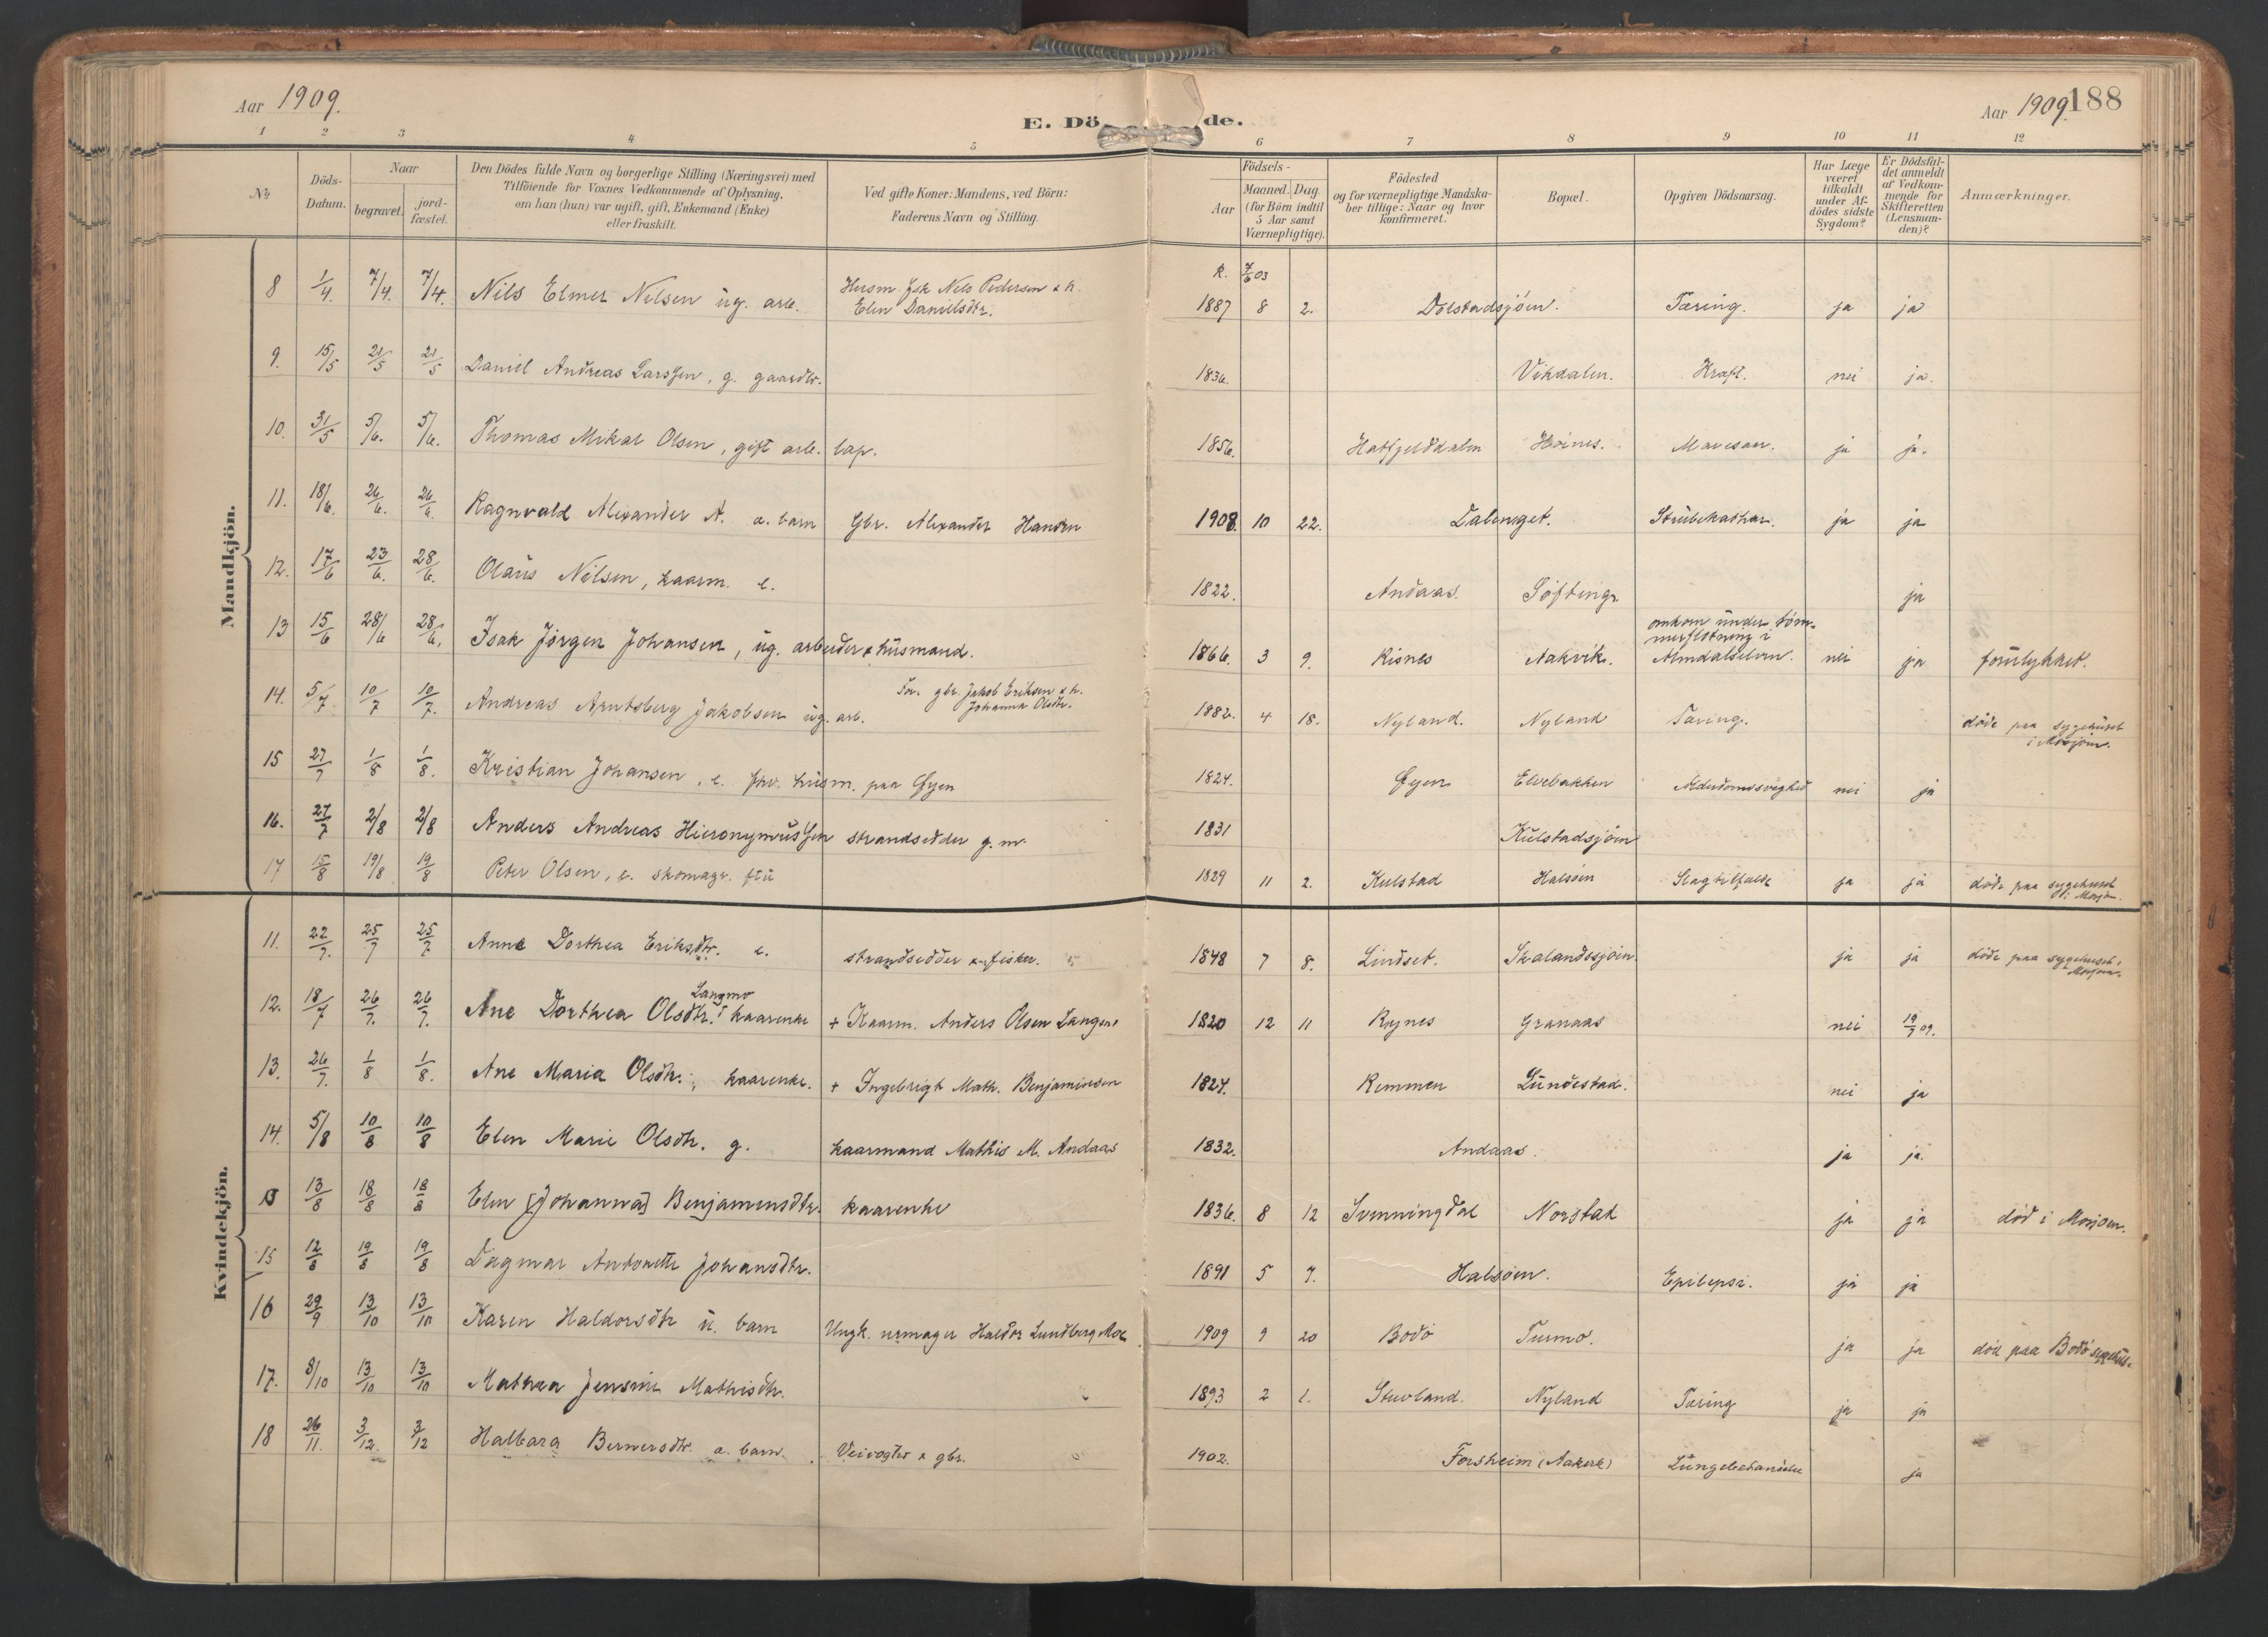 Aar 1909.
E. Dö de.
Aar 1909. 188
1 2 3 4 5 6 7 8 9 10 11 12
№
Döds-Datum.
Naar
begravet.
jord-fæstet.
Den Dödes fulde Navn og borgerlige Stilling (Næringsvei) med
Tilföiende for Voxnes Vedkommende af Oplysning,
om han (hun) var ugift, gift, Enkemand (Enke)
eller fraskilt.
Ved gifte Koner: Mandens, ved Börn:
Faderens Navn og Stilling.
Födsels-
Aar
Maaned. Dag.
(for Börn indtil
5 Aar samt
Værnepligtige).
Födested
og for værnepligtige Mandska-
ber tillige: Naar og hvor
konfirmeret.
Bopæl.
Opgiven Dödsaarsag.
Har Læge
været
tilkaldt
under Af-
dödes sidste
Sygdom?
Er Dödsfal-
det anmeldt
af Vedkom-
mende for
Skifteretten
(Lensman-
den)?
Anmærkninger.
Mandkjön.
8 1/4. 7/4. 7/4. Nils Elmer Nilsen ug. arb. Husm. Nils Pedersen & h. Elen Danielsdtr. 1887 8 2. Dolstadsjöen. Tæring. ja ja
9. 15/5 21/5 21/5 Daniel Andreas Larssen, g. gaardbr. 1836. Vikdalen. Kræft. nei ja.
10. 31/5 5/6. 5/6. Thomas Mikal Olsen, gift arb. lap. 1856. Hatfjelddalen Höines. Mavesaar. ja ja.
11. 18/6. 26/6. 26/6. Ragnvald Alexander A. a. barn Gbr. Alexander Hansen 1908. 10 22. Dalenget. Strubekathar. ja ja
12. 17/6 23/6. 28/6. Olaus Nilsen, kaarm. e. 1822. Andaas. Söfting. ja
13 15/6 28/6 28/6. Isak Jörgen Johansen, ug. arbeider & husmand. 1866. 3 9. Risnes Aakvik. omkom under töm-
merflötning i
Almdalselven. nei ja forulykket.
14. 5/7 10/7 10/7. Andreas Arntsberg Jakobsen ug. arb. For. gbr. Jakob Eriksen & h.
Johanna Olsdtr. 1882. 4 18. Nyland. Nyland Tæring. döde paa sygehuset
i Mosjöen.
15 27/7 1/8 1/8. Kristian Johansen, e. fhv. husm. paa Öyen 1824. Öyen Elvebakken Alderdomssvaghed nei ja
16. 27/7 2/8 2/8 Anders Andreas Hieronymussen strandsidder g. m. 1831 Kulstadsjöen
17 15/8 19/8 19/8 Peter Olsen, e. skomagr. 1829 11 2. Kulstad Halsöen Slagtilfælde ja ja döde paa sygehuset
i Mosjöen.
Kvindekjön.
11. 22/7. 25/7 25/7 Anne Dorthea Eriksdtr. e. strandsidder & fisker. 1848 7 8. Lindset. Skalandssjöen. ja ja döde paa sygehuset i
Mosjöen.
Langmo
12. 18/7 26/7. 26/7. Ane Dorthea Olsdtr. kaarenke + Kaarm. Anders Olsen Langmo 1820 12 11 Rynes Granaas nei 19/7 09.
13. 26/7. 1/8 1/8. Ane Maria Olsdtr., kaarenke. + Ingebrigt Math. Benjaminsen 1824. Remmen Lundestad. nei ja
14. 5/8 10/8 10/8 Elen Marie Olsdtr. g. kaarmand Mathis M. Andaas 1832. Andaas. ja ja.
13/8 18/8 18/8 Elen [Johanna] Benjaminsdtr. kaarenke 1836. 8 12 Svenningdal Norstad ja ja död i Mosjöen.
15 12/8 19/8 19/8 Dagmar Antonette Johansdtr. 1891 5 7. Halsöen. Epilepsi. ja ja
16 29/9 13/10 13/10 Karen Haldorsdtr u. barn Ungk. urmager Haldor Lundberg Moe 1909 9 20 Bodö Turmo. ja ja död paa Bodö sygehus.
17. 8/10 13/10 13/10 Mathea Jensine Mathisdtr. 1893 2 1. Stuvland. Nyland Tæring ja ja
18 26/11. 3/12. 3/12 Halbara Bernersdtr. a. barn. Veivogter & gbr. 1902. Forsheim (Aakerk) ja